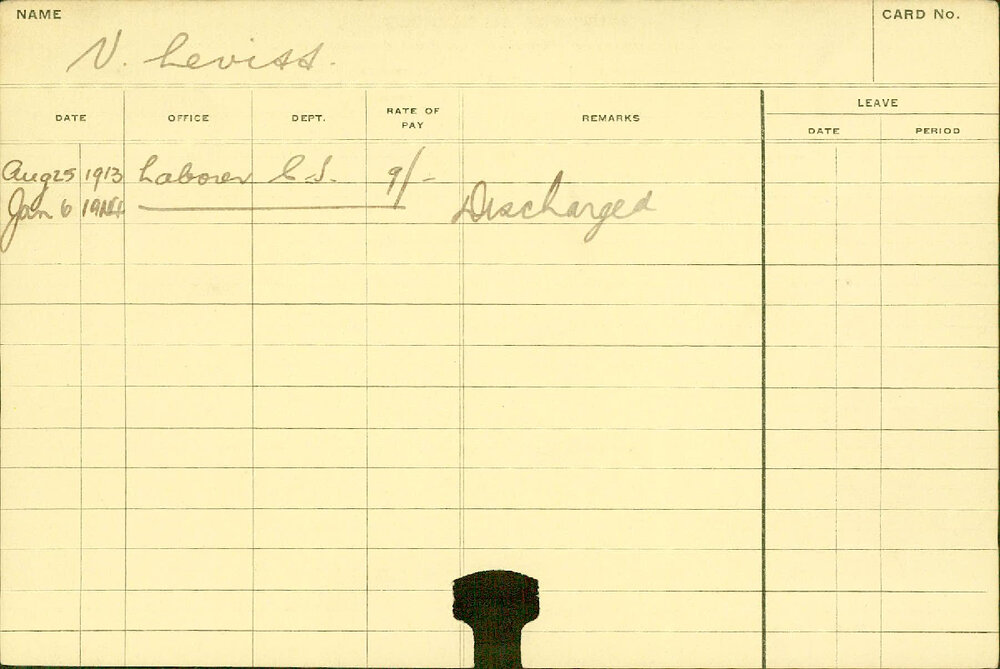 NAME
CARD No.
V. Leviss.
DATE OFFICE DEPT. RATE OF PAY REMARKS LEAVE
DATE PERIOD
Aug 25 1913 Laborer C.S. 9/-
Jan 6 1914 Discharged